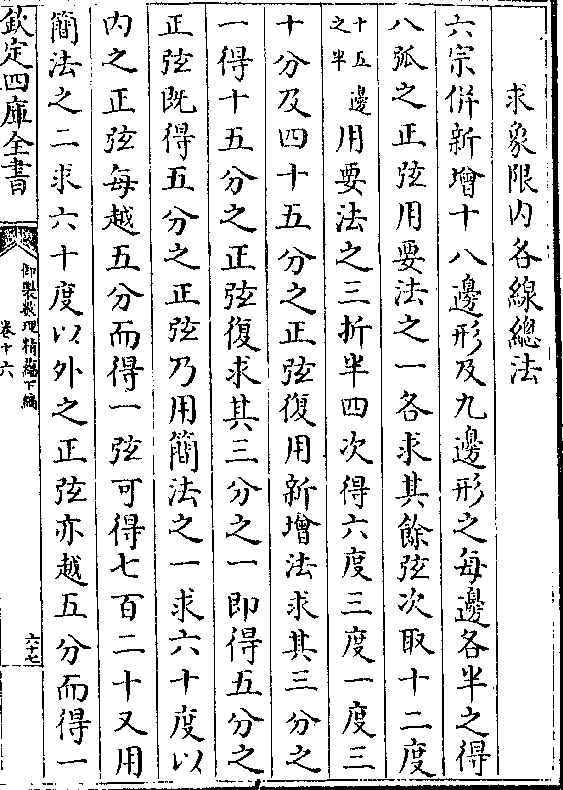 求象限内各線總法
六宗併新增十八邊形及九邊形之每邊各半之得
八弧之正弦用要法之一各求其餘弦次取十二度
十五邊
之半
用要法之三折半四次得六度三度一度三
十分及四十五分之正弦復用新增法求其三分之
一得十五分之正弦復求其三分之一即得五分之
正弦既得五分之正弦乃用簡法之一求六十度以
内之正弦每越五分而得一弦可得七百二十又用
簡法之二求六十度以外之正弦亦越五分而得一
欽定四庫全書
御製數理精藴下編
卷十六
六十七